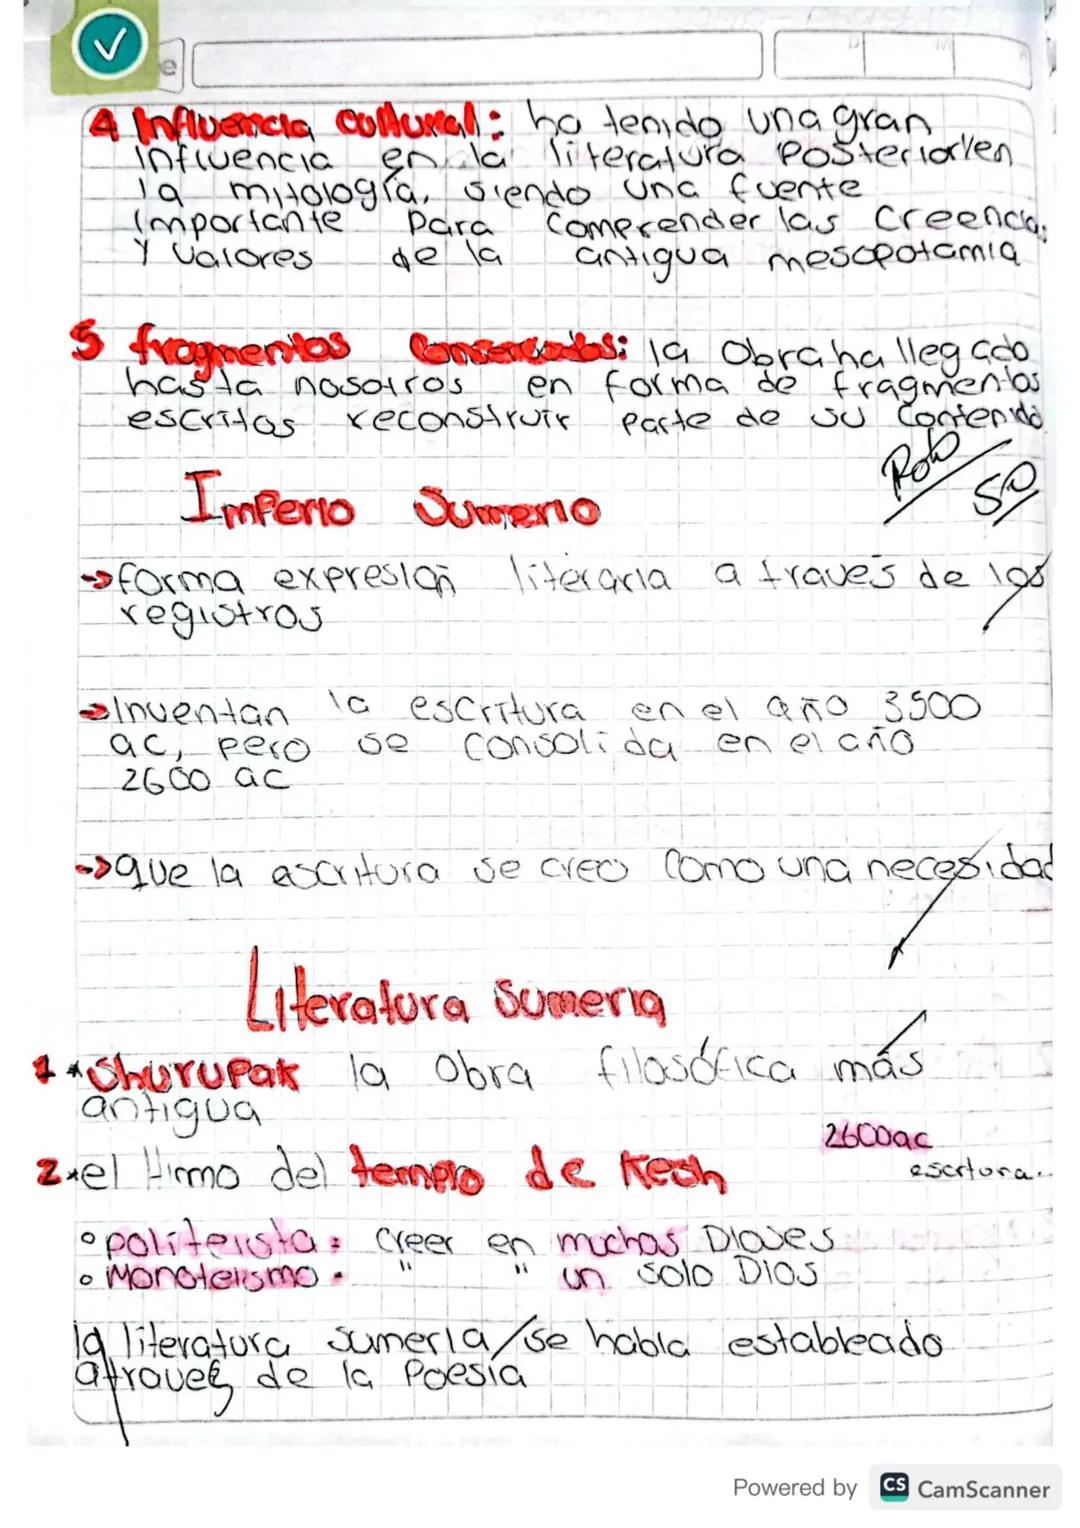 e
D M A
4 Influencia cultural: ha tenido una gran
influencia en la literatura Posterior/en
la mitología, siendo una fuente
importante Para comprender las Creencias
Y valores de la antigua mesopotamia
5 fragmentos Conservados: la Obra ha llegado
hasta nosotros en forma de fragmentos
escritos reconstruir Parte de su Contenido
50
Imperio Sumerio
→ forma expresion literaria a traves de los
registros
→ Inventan la escritura en el año 3500
ac, pero se consolida en el año
2600 ac
→ que la escritura se creo como una necesidad
Literatura Sumeria
1 * Shurupak la Obra filosófica más
antigua
2600ac
2 * el Himno del templo de Kesh
escrtura..
° politeista: creer en muchos Dioses
° Monoteismo. " " un solo Dios
la literatura sumeria/se habla estableado
atraves de la Poesia
Powered by CS CamScanner